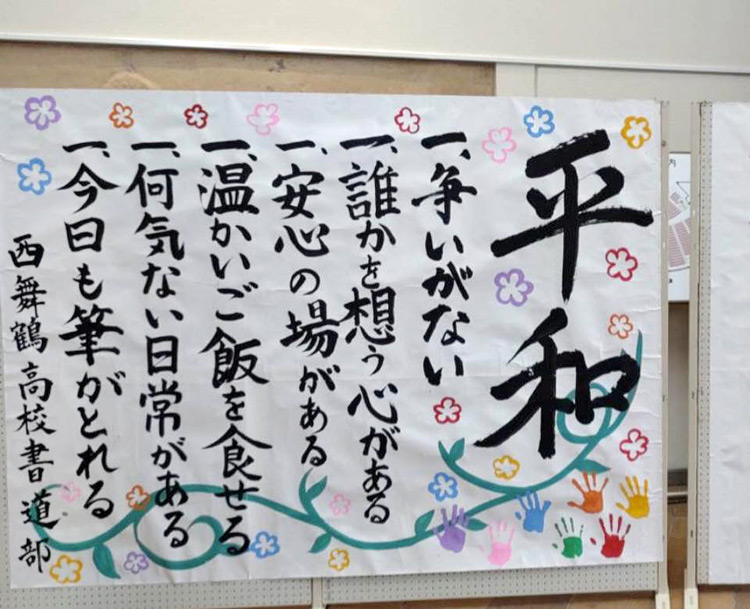 平和
一、争いがない
一、誰かを想う心がある
一、安心の場がある
一、温かいご飯を食せる
一、何気ない日常がある
一、今日も筆がとれる
西舞鶴高校書道部